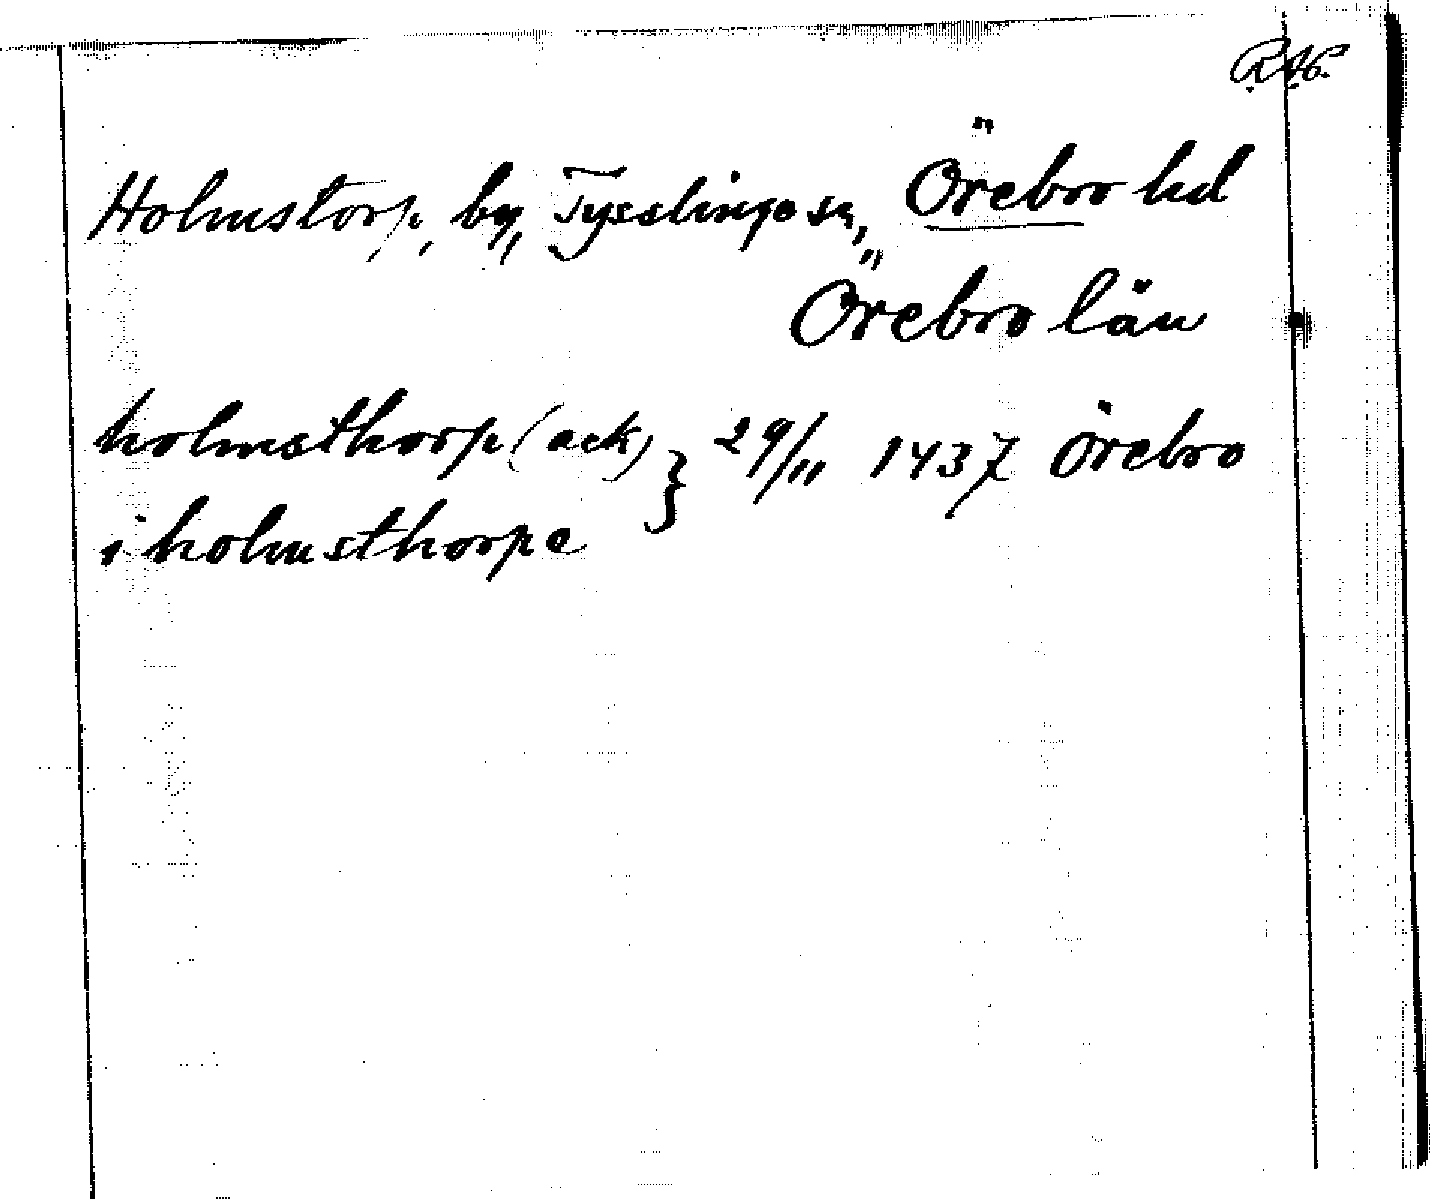 R.A.P.
Holmstorp, by, Tysslinge sn, Örebro hd
Örebro län
holmsthorp (ack) } 29/11 1437 Örebro
i holmsthorpe